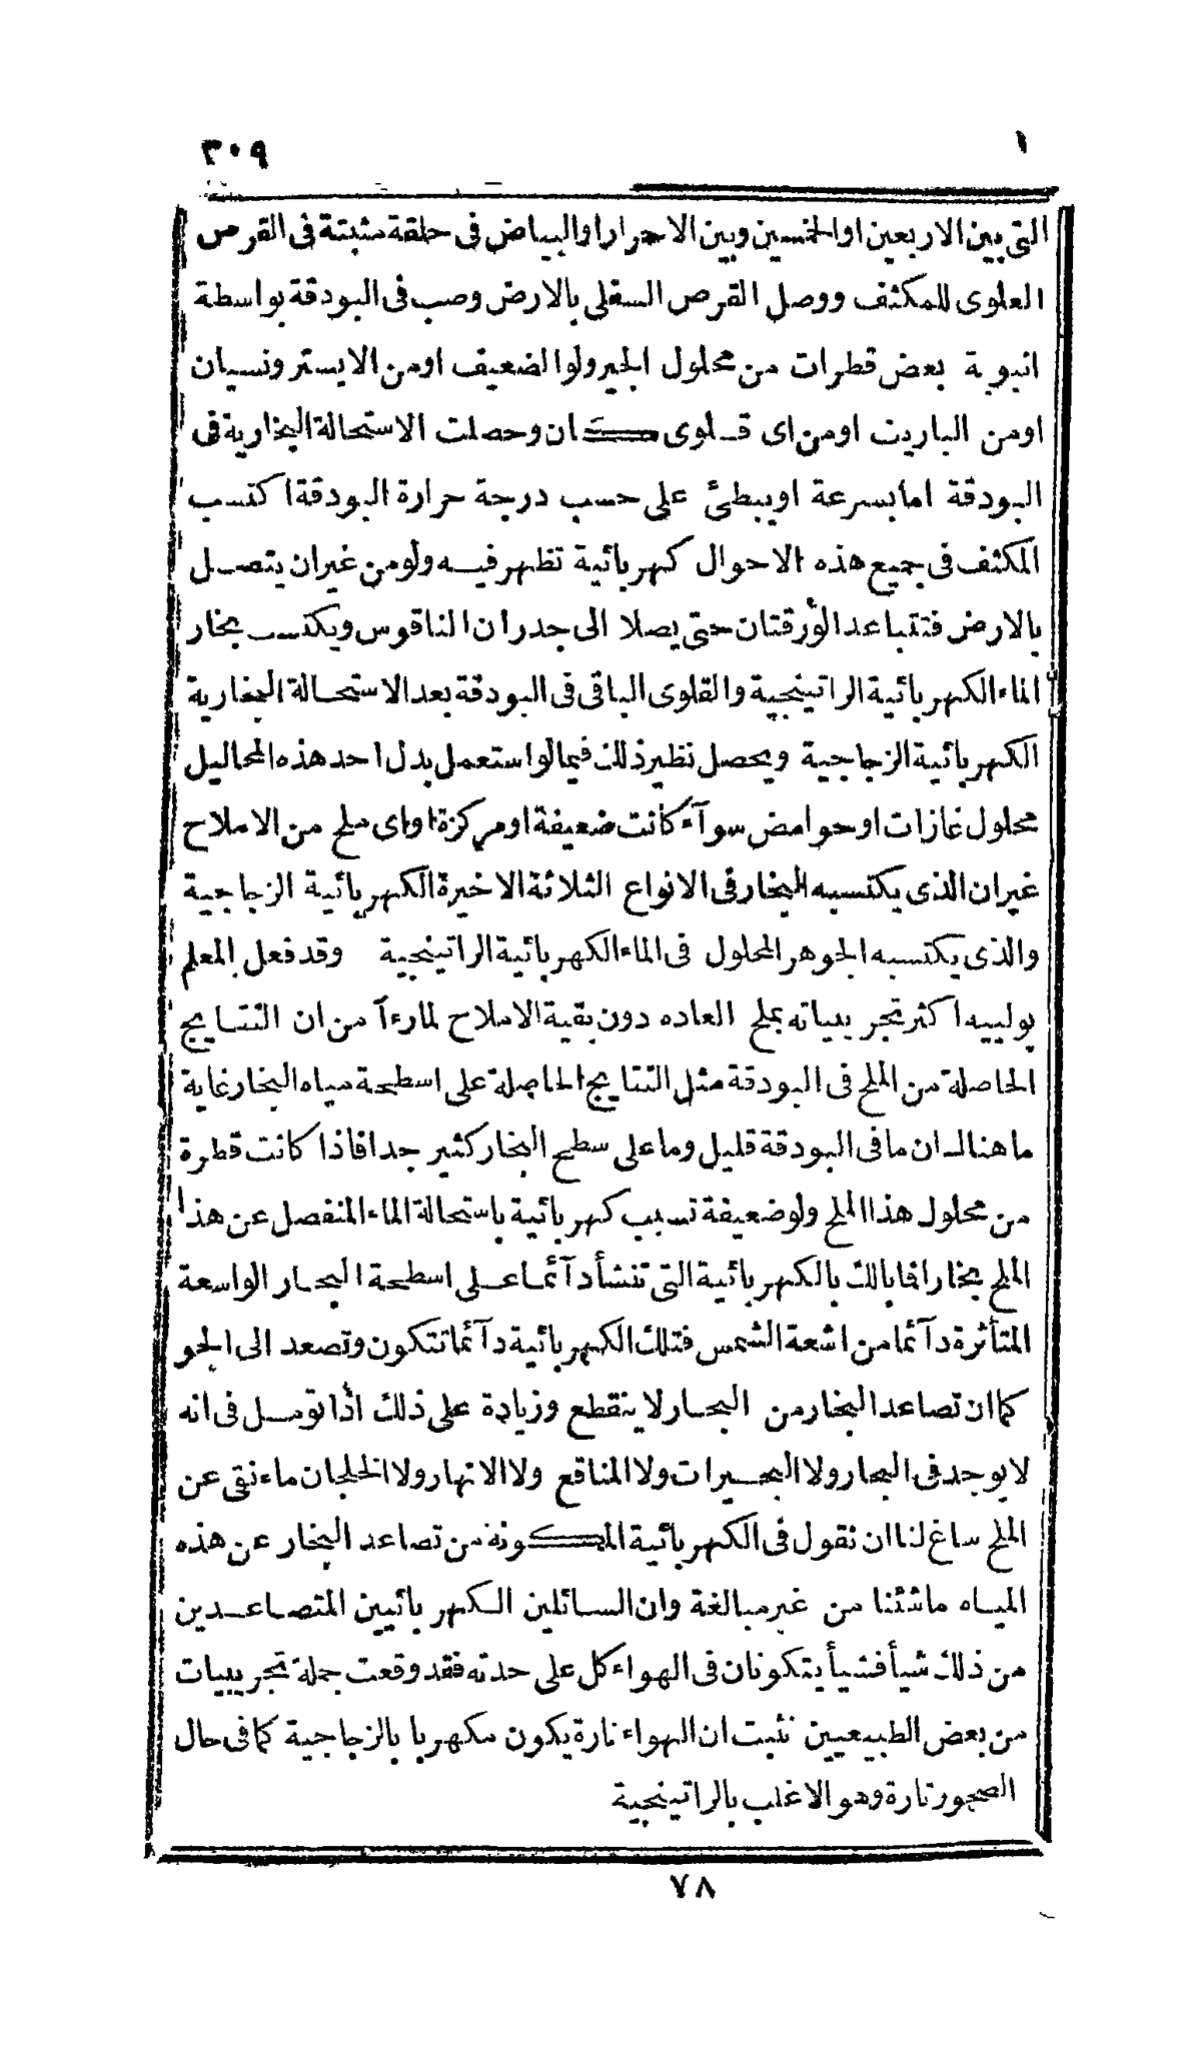 ١ ٣٠٩
التى بين الاربعين او الخمسين وبين الاحرار او البياض فى حلقة مثبتة فى القرص
العلوى للمكثف ووصل القرص السفلى بالارض وصب فى البودقة بواسطة
انبوبة بعض قطرات من محلول الجير ولو الضعيف او من الايسترونسيان
او من الباريت او من اى قلوى كان وحصلت الاستحالة البخارية فى
البودقة اما بسرعة او ببطئ على حسب درجة حرارة البودقة اكتسب
المكثف فى جميع هذه الاحوال كهربائية تظهر فيه ولو من غير ان يتصل
بالارض فتتباعد الورقتان حتى يصلا الى جدران الناقوس ويكتسب بخار
الماء الكهربائية الراتينجية والقلوى الباقى فى البودقة بعد الاستحالة البخارية
الكهربائية الزجاجية ويحصل نظير ذلك فيما لو استعمل بدل احد هذه المحاليل
محلول غازات او حوامض سوآء كانت ضعيفة او مركزة او اى ملح من الاملاح
غير ان الذى يكتسبه البخار فى الانواع الثلاثة الاخيرة الكهربائية الزجاجية
والذى يكتسبه الجوهر المحلول فى الماء الكهربائية الراتينجية وقد فعل المعلم
پولييه اكثر تجربياته بملح العاده دون بقية الاملاح لما رءآ من ان النتايج
الحاصلة من الملح فى البودقة مثل النتايج الحاصلة على اسطحة مياه البخار غاية
ما هنالك ان ما فى البودقة قليل وما على سطح البخار كثير جدا فاذا كانت قطرة
من محلول هذا الملح ولو ضعيفة تسبب كهربائية باستحالة الماء المنفصل عن هذا
الملح بخارا فما بالك بالكهربائية التى تنشأ دآئما على اسطحة البحار الواسعة
المتأثرة دآئما من اشعة الشمس فتلك الكهربائية دآئما تتكون وتصعد الى الجو
كما ان تصاعد البخار من البحار لا ينقطع وزيادة على ذلك اذا تومل فى انه
لا يوجد فى البحار ولا البحيرات ولا المناقع ولا الانهار ولا الخلجان ماء نقى عن
الملح ساغ لنا ان نقول فى الكهربائية المكونة من تصاعد البخار عن هذه
المياه ما شئنا من غير مبالغة وان السائلين الكهربائيين المتصاعدين
من ذلك شيأ فشيأ يتكونان فى الهواء كل على حدته فقد وقعت جملة تجربيات
من بعض الطبيعيين تثبت ان الهواء تارة يكون مكهربا بالزجاجية كما فى حال
الصحو وتارة وهو الاغلب بالراتينجية
٧٨